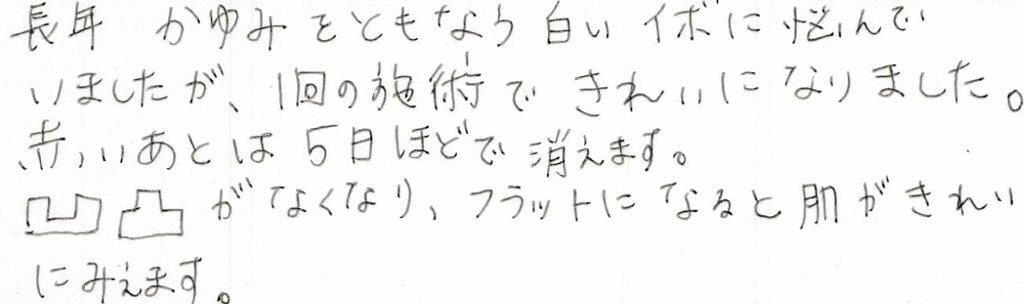 長年 かゆみをともなう白いイボに悩んで
いましたが、1回の施術できれいになりました。
赤いあとは5日ほどで消えます。
凹凸がなくなり、フラットになると肌がきれい
にみえます。